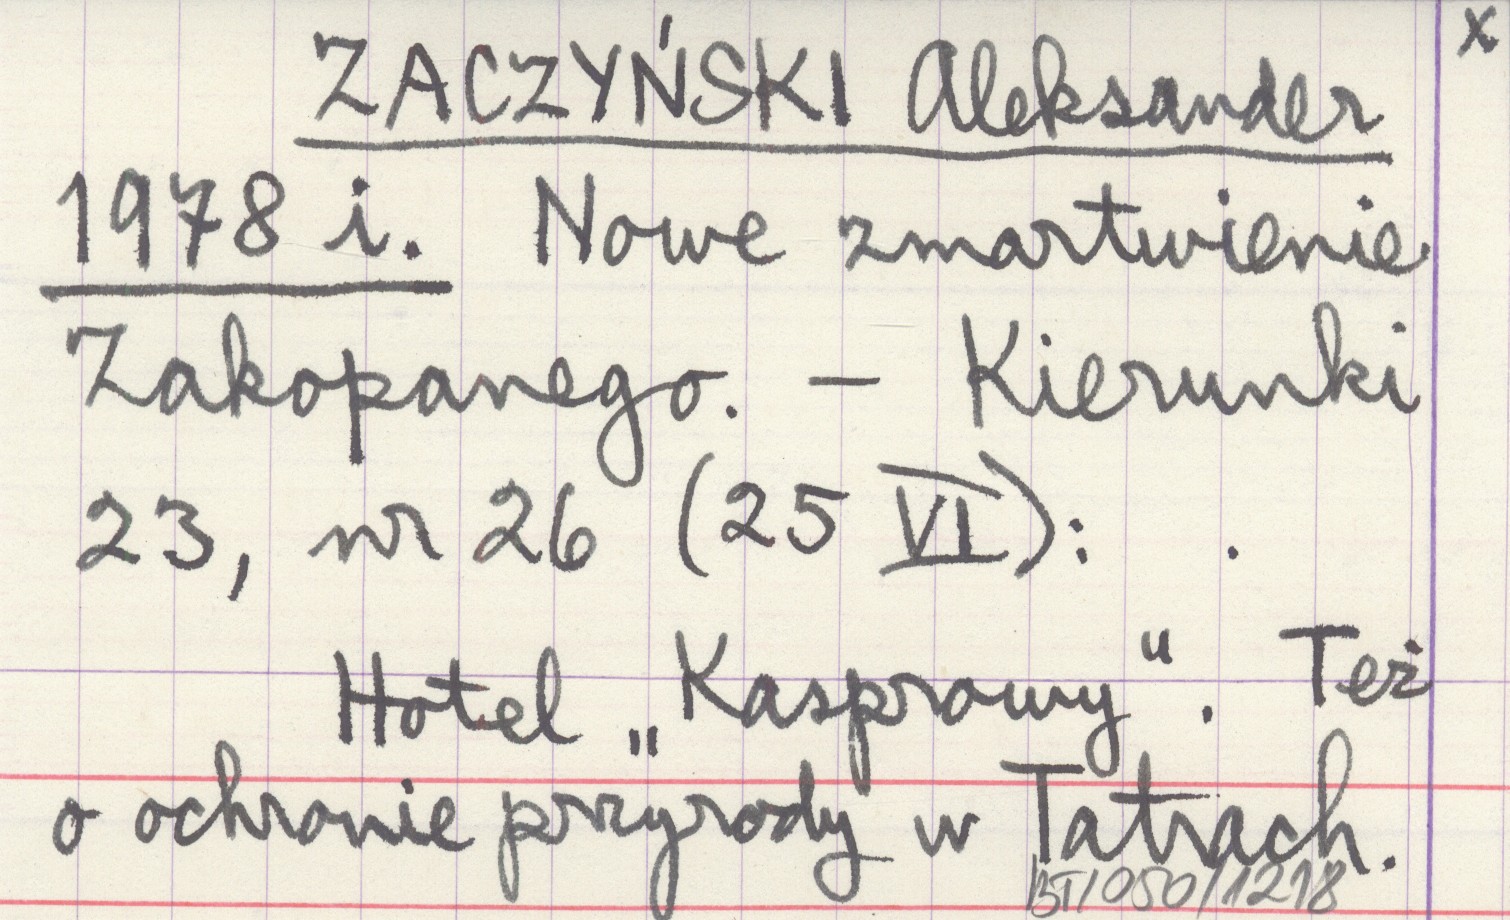 x
ZACZYŃSKI Aleksander
1978 i. Nowe zmartwienie
Zakopanego. – Kierunki
23, nr 26 (25 VI): .
Hotel „Kasprowy". Też
o ochronie przyrody w Tatrach.
BT/050/1218